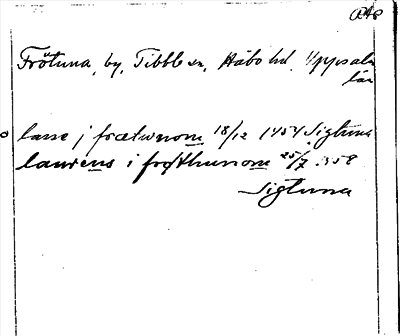 Frötuna, by, Tibble sn, Håbo hd, Uppsala
län
lasse j frætunom 18/12 1454 Sigtuna
laurens i frøthunom 25/7 1358
Sigtuna